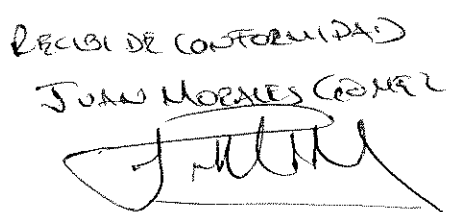 RECIBI DE CONFORMIDAD
JUAN MORALES GOMEZ